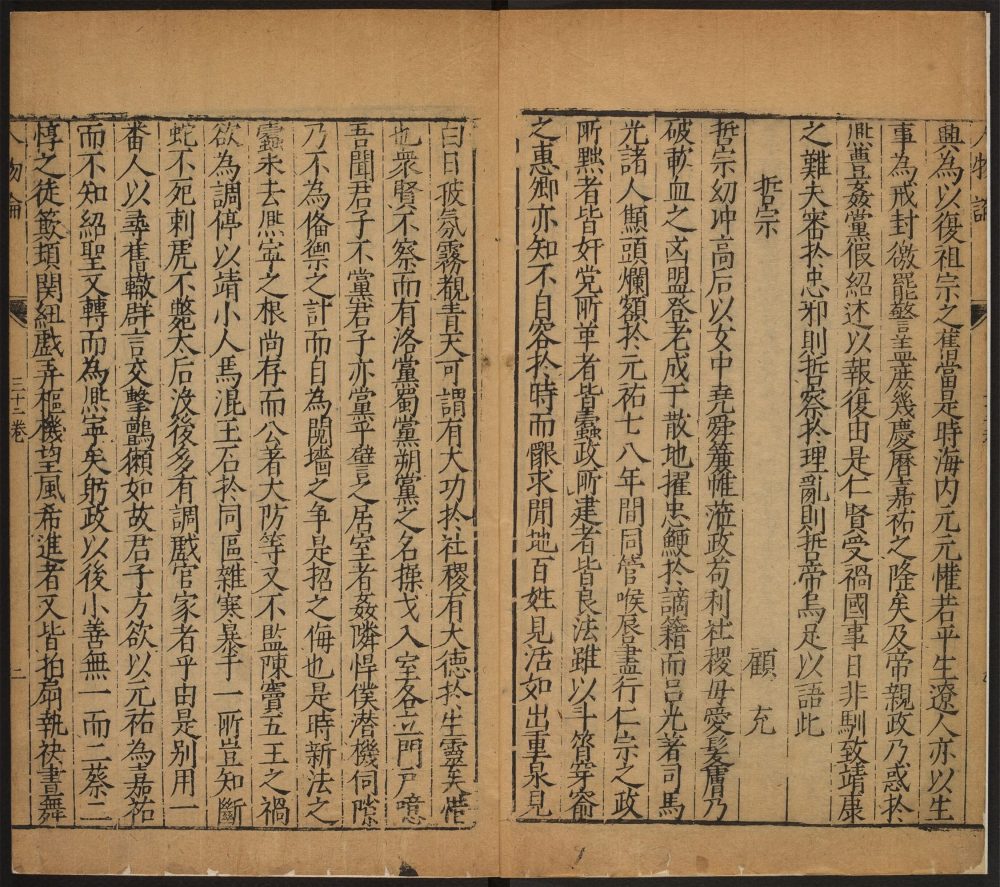 典為以復祖宗之舊當是時海内元元懽若平生遼人亦以生
事為戒封徼罷警盖庶幾慶曆嘉祐之隆矣及帝親政乃惑於
熈豊姦黨假紹述以報復由是仁賢受禍國事日非馴致靖康
之難夫審於忠邪則哲察於理亂則哲帝烏足以語此
哲宗
顧充
哲宗幼冲高后以女中堯舜簾帷蒞政苟利社稷毋愛髪膚乃
破歃血之凶盟登老成于散地擢忠鯁於謫籍而吕光著司馬
光諸人顯頭爛額於元祐七八年間同管喉唇盡行仁宗之政
所黜者皆奸党所革者皆蠹政所建者皆良法雖以斗筲穿窬
之惠卿亦知不自容於時而懇求閒地百姓見活如出重泉見
白日披氛霧覩青天可謂有大功於社稷有大德於生靈矣惜
也衆賢不察而有洛黨蜀黨朔黨之名操戈入室各立門戸噫
吾聞君子不黨君子亦黨乎譬之居室者姦隣悍僕潜機伺隙
乃不為俻禦之計而自為鬩墻之争是招之侮也是時新法之
蠹未去熈寧之根尚存而公著大防等又不監陳竇五王之禍
欲為調停以靖小人馬混王石於同區雜寒暴于一所豈知斷
蛇不死刺虎不斃太后没後多有調戲官家者乎由是别用一
畨人以尋舊轍群言交撃鷊獺如故君子方欲以元祐為嘉祐
而不知紹聖又轉而為熈寧矣躬政以後小善無一而二蔡二
惇之徒簸頓関紐戲弄樞機望風希進者又皆拍肩執袂晝舞
人物論
三十二卷
二